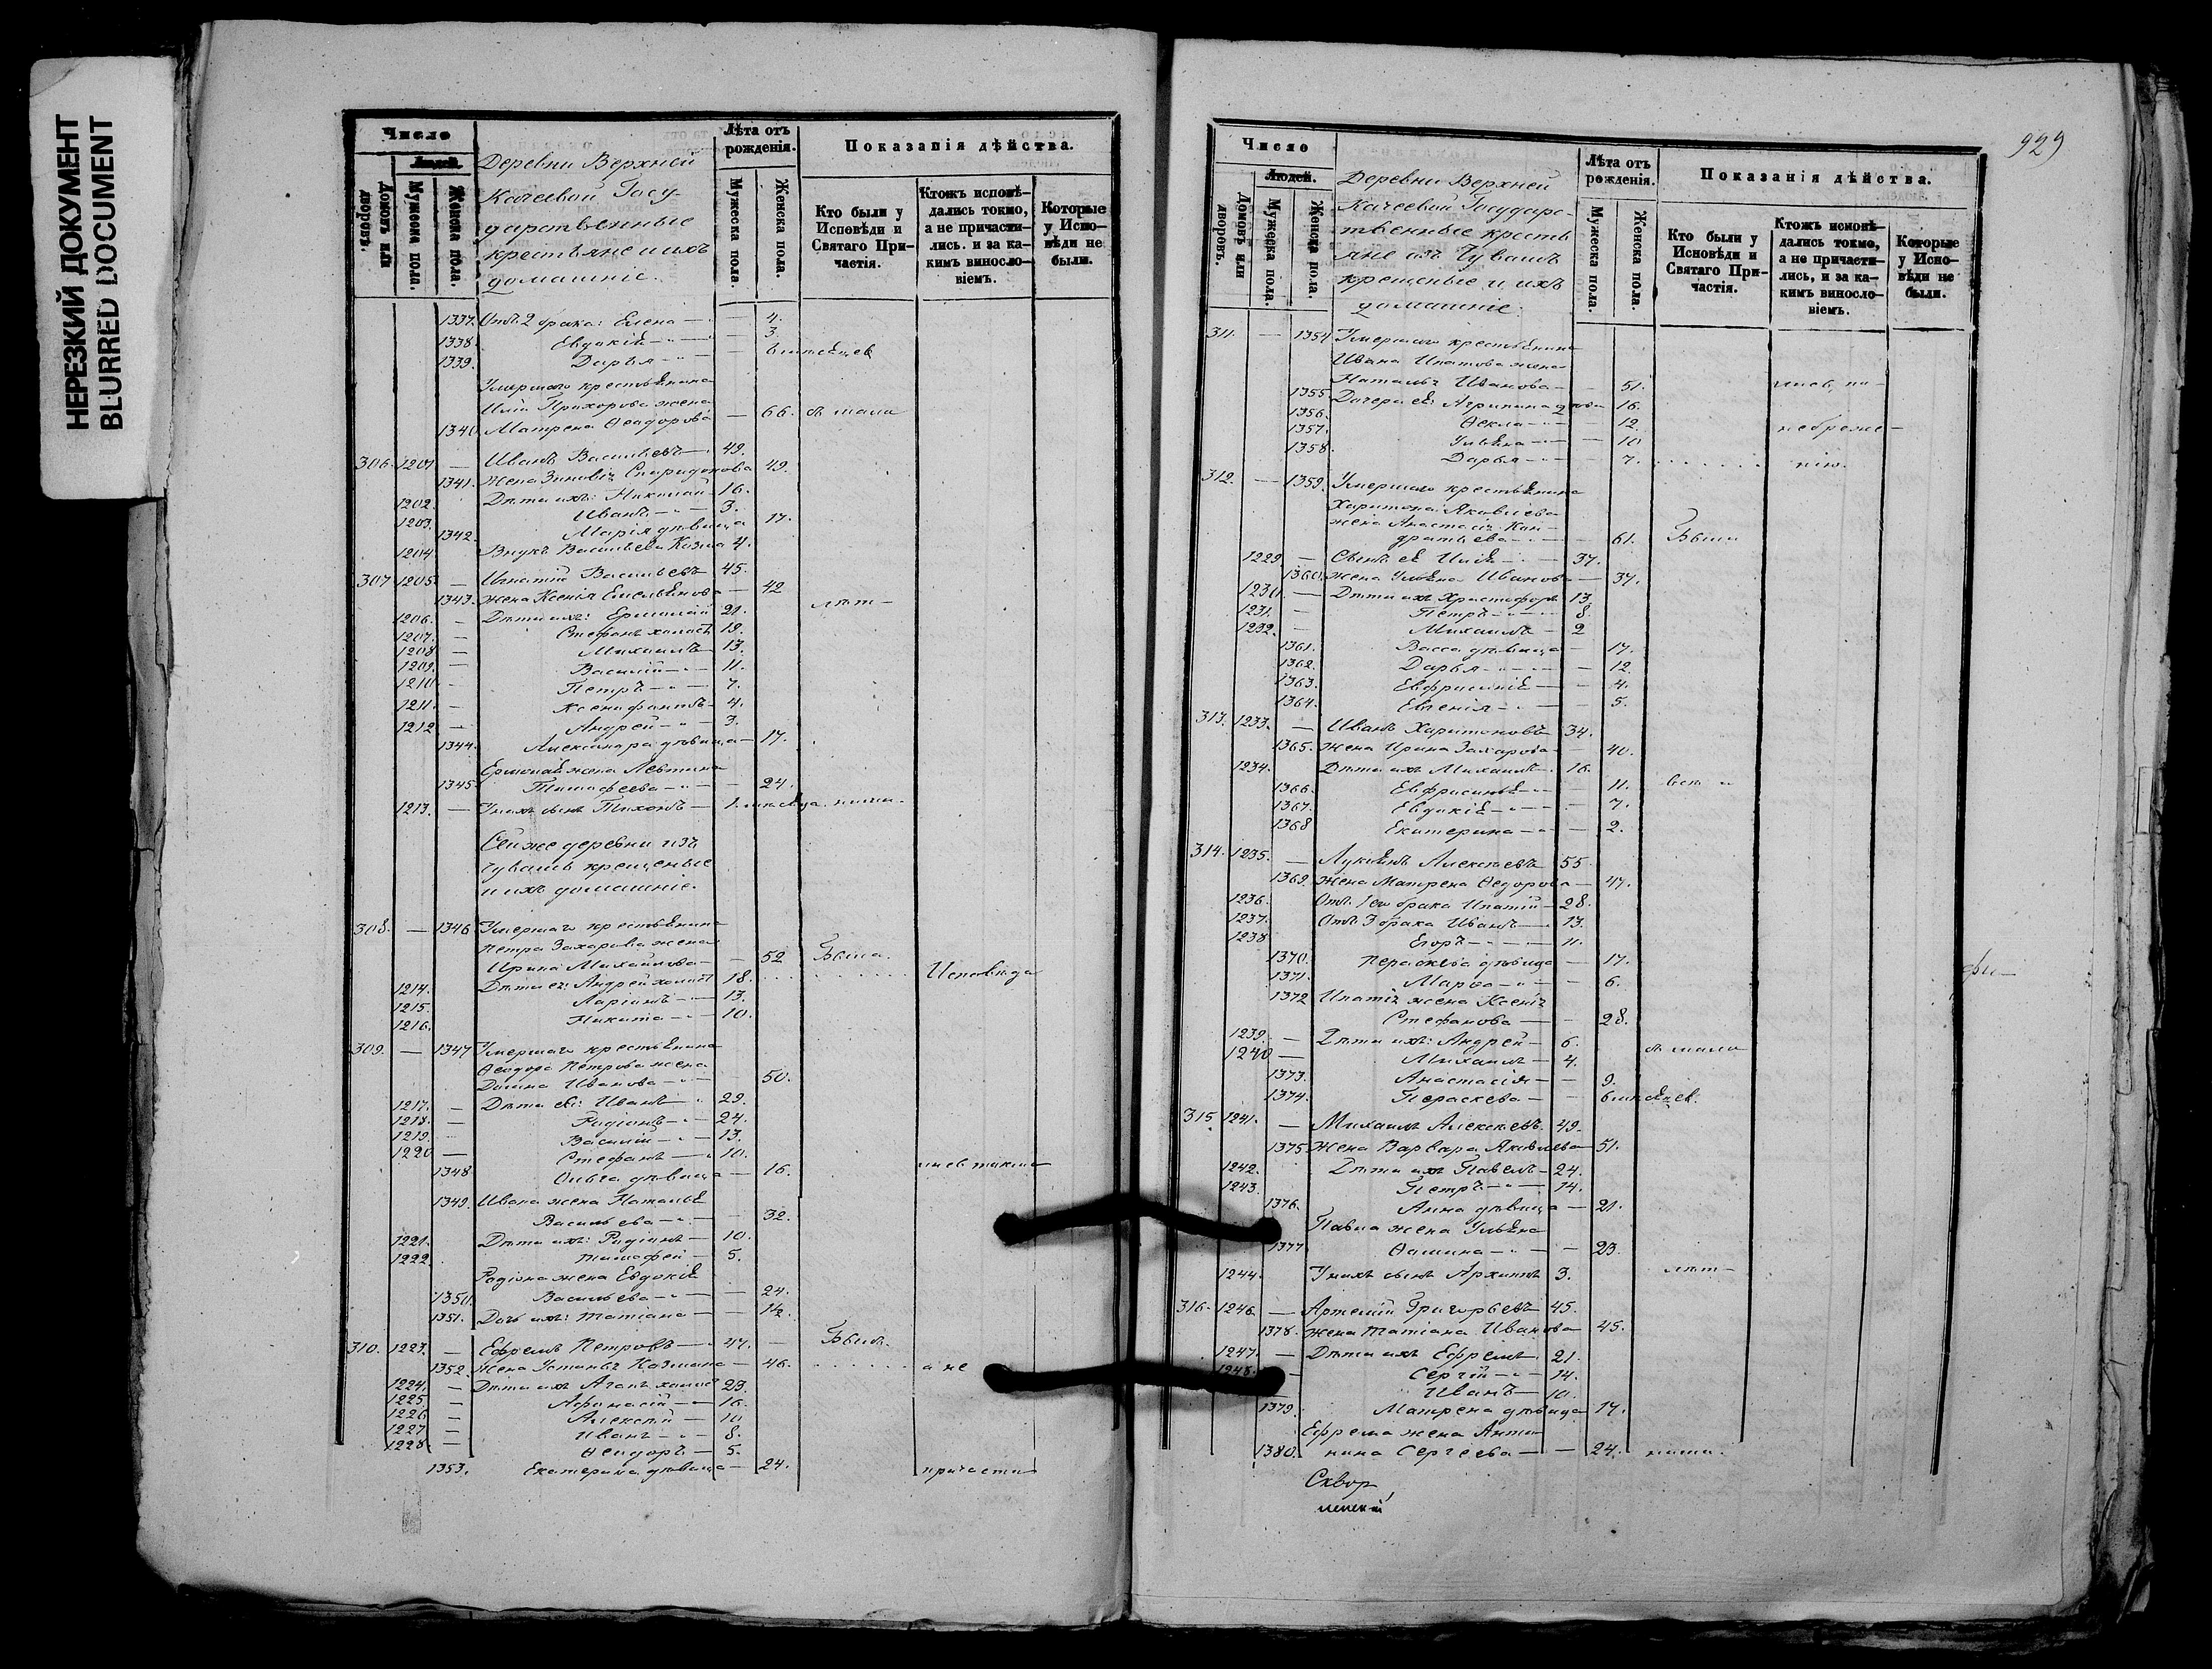 НЕРЕЗКИЙ ДОКУМЕНТ
BLURRED DOCUMENT
Число
Людей.
Домовъ или дворовъ.
Мужеска пола.
Женска пола.
Деревни Верхней
Качеевой Госу-
дарственные
крестьяне и ихъ
домашніе.
Лѣта отъ рожденія.
Мужеска пола.
Женска пола.
Показанія дѣйства.
Кто были у Исповѣди и Святаго При-частія.
Ктожъ исповѣ-дались токмо, а не причасти-лись. и за ка-кимъ винословіемъ.
Которые у Испо-вѣди не были.
1337. Отъ 2 брака: Елена — 4.
1338. Евдокія — 3.
1339. Дарья — 6 мѣсяцев
Умершаго крестьянина
Иліи Прохорова жена
1340 Матрена Ѳеодорова — 66. за мало
306. 1201. — Иванъ Васильевъ — 49.
1341. Жена Зиновія Спиридонова 49.
1202. Дѣти ихъ: Николай — 16.
1203. Иванъ — 3.
1342. Марія дѣвица 17.
1204. Внукъ Васильева Козма 4.
307 1205. — Игнатій Васильевъ 45.
1343. Жена Ксенія Емельянова — 42
1206. — Дѣти ихъ: Ермолай 21. лѣт-
1207. — Стефанъ холостъ 19.
1208 — Михаилъ — 13.
1209. — Василій — 11.
1210 — Петръ — 7.
1211. — Ксенофонтъ — 4.
1212 — Андрей — 3.
1344. Александра дѣвица — 17.
Ермолая жена
1345 Тимофеева — 24.
1213. — У нихъ сынъ Тихонъ — 1. мѣсяца. ними.
Сей же деревни изъ
чувашъ крещеные
и ихъ домашніе.
308. — 1346 Умершаго крестьянина
Петра Захарова жена
Ирина Михайлова — 52 Была.
1214. Дѣти ея: Андрей холостъ 18. Исповѣда
1215. Ларіонъ — 13.
1216. Никита — 10.
309. — 1347 Умершаго крестьянина
Ѳеодора Петрова жена
Домна Иванова — 50.
1217. — Дѣти ея: Иванъ — 29.
1218. — Родіонъ — 24.
1219. Василій — 13.
1220 — Стефанъ — 10.
1348 Ольга дѣвица — 16. лись токмо
1349. Ивана жена Наталья
Васильева — 32.
1221. Дѣти ихъ: Родіонъ — 10.
1222. Тимофей — 5.
Родіона жена Евдокія
1350. Васильева — 24.
1351. Дочь ихъ: Татіана — 1/2.
310. 1223. — Ефремъ Петровъ — 47. — Былъ.
1352. Жена Устинья Козмина — 46. а не
1224. — Дѣти ихъ Агапъ холостъ 23.
1225 — Афанасій — 16.
1226 — Алексѣй — 10
1227 — Иванъ — 8.
1228. — Ѳеодоръ — 5.
1353. Екатерина дѣвица — 24. причасти
929
Число
Людей.
Домовъ или дворовъ.
Мужеска пола.
Женска пола.
Деревни Верхней
Качеевой Государс-
твенные кресть
яне изъ Чувашъ
крещеные и ихъ
домашніе.
Лѣта отъ рожденія.
Мужеска пола.
Женска пола.
Показанія дѣйства.
Кто были у Исповѣди и Святаго При-частія.
Ктожъ исповѣ-дались токмо, а не причасти-лись, и за ка-кимъ винословіемъ.
Которые у Испо-вѣди не были.
311. — 1354 Умершаго крестьянина
Ивана Ипатова жена
Наталья Иванова — 51. лись, по-
1355 Дочери ея: Агрипина дѣва 16.
1356. Ѳекла — 12. небреже-
1357. Ульяна — 10
1358. Дарья — 7. нію.
312. — 1359. Умершаго крестьянина
Харитона Яковлева
жена Анастасія Кон-
дратьева — 61. Была
1229 — Сынъ ея Илія — 37.
1360. Жена Ульяна Иванова — 37.
1230. — Дѣти ихъ Христофоръ 13.
1231. — Петръ — 8.
1232. — Михаилъ — 2
1361. Васса дѣвица — 17.
1362. Дарья — 12
1363. Евфросинія — 4.
1364. Евгенія — 5.
313. 1233. — Иванъ Харитоновъ 34.
1365. Жена Ирина Захарова — 40.
1234. Дѣти ихъ Михаилъ — 16.
1366. Евфросинья — 11. всѣ и
1367. Евдокія — 7.
1368 Екатерина — 2.
314. 1235. — Лукіянъ Алексѣевъ 55
1369. Жена Матрена Ѳедорова — 47.
1236. Отъ 1го брака Ипатій — 28.
1237. Отъ 3 брака Иванъ — 13.
1238 Егоръ — 11.
1370. Пераскева дѣвица — 17.
1371. Марѳа — 6.
1372 Ипатія жена Ксенія
Стефанова — 28.
1239. — Дѣти ихъ: Андрей — 6.
1240 — Михаилъ — 4. за мало
1373. Анастасія — 9.
1374. Пераскева — 6 мѣсяцев.
315. 1241. — Михаилъ Алексѣевъ. 49.
1375 Жена Варвара Яковлева — 51.
1242. Дѣти ихъ Павелъ — 24.
1243. Петръ — 14.
1376. Анна дѣвица — 21.
Павла жена Ульяна
1377 Ѳомина — 23.
1244. У нихъ сынъ Архипъ 3. лѣт-
316. 1246. — Артемій Григорьевъ 45.
1378. Жена Татіана Иванова 45.
1247. — Дѣти ихъ Ефремъ 21.
1248. — Сергій — 14.
Иванъ — 10.
1379. Матрена дѣвица 17.
Ефрема жена Анто-
1380. нина Сергѣева — 24. ними.